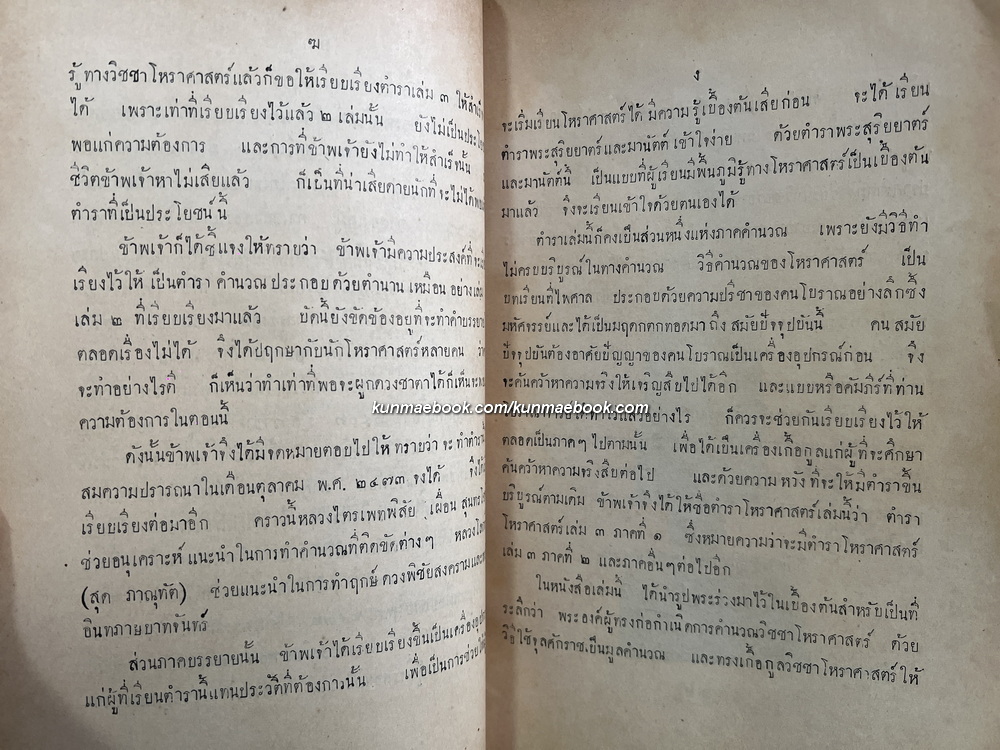 ฆ
รู้ทางวิชชาโหราศาสตร์แล้วก็ขอให้เรียบเรียงตำราเล่ม ๓ ให้สำเร็จ
ได้ เพราะเท่าที่เรียบเรียงไว้แล้ว ๒ เล่มนั้น ยังไม่เป็นประโยชน์
พอแก่ความต้องการ และการที่ข้าพเจ้ายังไม่ทำให้สำเร็จนั้น
ชีวิตข้าพเจ้าหาไม่เสียแล้ว ก็เป็นที่น่าเสียดายนักที่จะไม่ได้
ตำราที่เป็นประโยชน์นี้
ข้าพเจ้าก็ได้ชี้แจงให้ทราบว่า ข้าพเจ้ามีความประสงค์ที่จะ
เรียงไว้ให้ เป็นตำรา คำนวณ ประกอบ ด้วยตำนาน เหมือน อย่าง
เล่ม ๒ ที่เรียบเรียงมาแล้ว บัดนี้ยังขัดข้องอยู่ที่จะทำคำบรรยาย
ตลอดเรื่องไม่ได้ จึงได้ปฤกษากับนักโหราศาสตร์หลายคน ว่า
จะทำอย่างไรดี ก็เห็นว่าทำเท่าที่พอจะผูกดวงชาตาได้ก็เห็นจะ
ความต้องการในตอนนี้
ดังนั้นข้าพเจ้าจึงได้มีจดหมายตอบไปให้ ทราบว่า จะ ทำตำรา
สมความปรารถนาในเดือนตุลาคม พ.ศ. ๒๔๗๓ จงได้ จึงได้
เรียบเรียงต่อมาอีก คราวนี้หลวงไตรเพทพิสัย (เผื่อน สุนทร
ช่วยอนุเคราะห์ แนะนำในการทำคำนวณที่ติดขัดต่างๆ หลวง
(สุด ภาณุทัต) ช่วยแนะนำในการทำฤกษ์ ดวงพิชัยสงครามและ
อินทภาษบาทจันทร์
ส่วนภาคบรรยายนั้น ข้าพเจ้าได้เรียบเรียงขึ้นเป็นเครื่อง
แก่ผู้ที่เรียนตำรานี้แทนประวัติที่ต้องการนั้น เพื่อเป็นการช่วย
ง
จะเริ่มเรียนโหราศาสตร์ได้ มีความรู้เบื้องต้นเสียก่อน จะได้ เรียน
ตำราพระสุริยยาตร์และมานัตต์ เข้าใจง่าย ด้วยตำราพระสุริยยาตร์
และมานัตต์นี้ เป็นแบบที่ผู้เรียนมีพื้นภูมิรู้ทางโหราศาสตร์เป็นเบื้องต้น
มาแล้ว จึงจะเรียนเข้าใจด้วยตนเองได้
ตำราเล่มนี้ก็คงเป็นส่วนหนึ่งแห่งภาคคำนวณ เพราะยังมีวิธีทำ
ไม่ครบบริบูรณ์ในทางคำนวณ วิธีคำนวณของโหราศาสตร์ เป็น
บทเรียนที่ไพศาล ประกอบด้วยความปรีชาของคนโบราณอย่างลึกซึ้ง
มหัศจรรย์และได้เป็นมฤดกตกทอดมา ถึง สมัยปัจจุบันนี้ คน สมัย
ปัจจุบันต้องอาศัยปัญญาของคนโบราณเป็นเครื่องอุปกรณ์ก่อน จึง
จะค้นคว้าหาความจริงให้เจริญสืบไปได้อีก และแบบหรือคัมภีร์ที่ท่าน
ไว้แล้วอย่างไร ก็ควรจะช่วยกันเรียบเรียงไว้ให้
kunmaebook.com/kunmaebook.com
ตลอดเป็นภาคๆ ไปตามนั้น เพื่อได้เป็นเครื่องเกื้อกูลแก่ผู้ที่จะศึกษา
ค้นคว้าหาความจริงสืบต่อไป และด้วยความหวังที่จะให้มีตำราขึ้น
บริบูรณ์ตามเดิม ข้าพเจ้าจึงได้ให้ชื่อตำราโหราศาสตร์เล่มนี้ว่า ตำรา
โหราศาสตร์เล่ม ๓ ภาคที่ ๑ ซึ่งหมายความว่าจะมีตำราโหราศาสตร์
เล่ม ๓ ภาคที่ ๒ และภาคอื่นๆต่อไปอีก
ในหนังสือเล่มนี้ ได้นำรูปพระร่วงมาไว้ในเบื้องต้นสำหรับเป็นที่
ระลึกว่า พระองค์ผู้ทรงก่อกำเนิดการคำนวณวิชชาโหราศาสตร์ ด้วย
วิธีใช้จุลศักราชเป็นมูลคำนวณ และทรงเกื้อกูลวิชชาโหราศาสตร์ให้